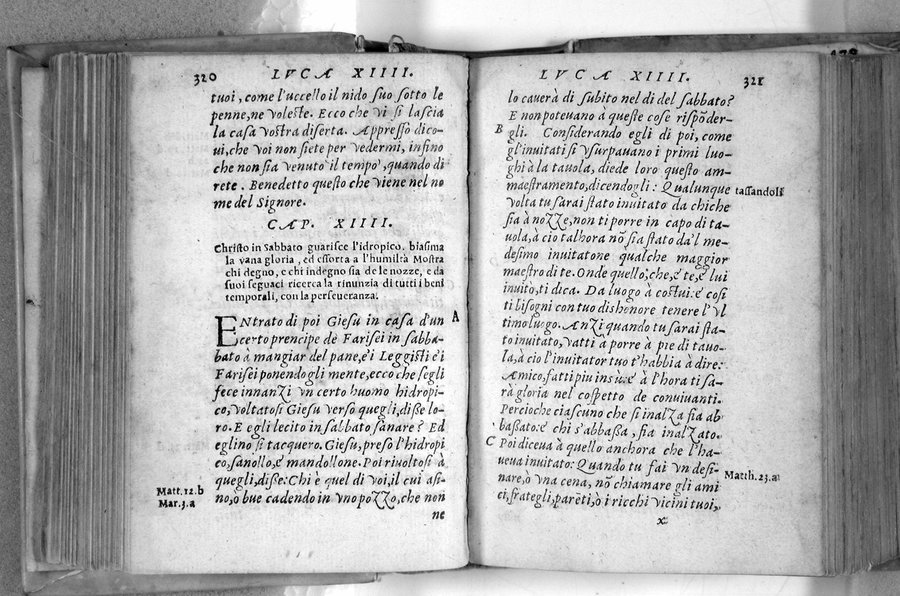 320 LVCA XIIII.
tuoi, come l'uccello il nido suo sotto le
penne, ne voleste. Ecco che vi si lascia
la casa vostra diserta. Appresso dico-
ui, che voi non siete per vedermi, infino
che non sia venuto il tempo, quando di
rete. Benedetto questo che viene nel no
me del Signore.
CAP. XIIII.
Christo in Sabbato guarisce l'idropico. biasima
la vana gloria, ed essorta a l'humiltà Mostra
chi degno, e chi indegno sia de le nozze, e da
suoi seguaci ricerca la rinunzia di tutti i beni
temporali, con la perseueranza.
ENtrato di poi Giesu in casa d'un A
certo prencipe de Farisei in sabba-
bato à mangiar del pane, e'i Leggisti e'i
Farisei ponendogli mente, ecco che segli
fece innanzi vn certo huomo hidropi-
co, voltatosi Giesu verso quegli, disse lo-
ro. E egli lecito in sabbato sanare? Ed
eglino si tacquero. Giesu, preso l'hidropi
co, sanollo, e mandollone. Poi riuoltosi à
quegli, disse: Chi è quel di voi, il cui asi-
Matt. 12. b
no, o bue cadendo in vno pozzo, che non
Mar. 3. a
ne
LVCA XIIII. 321
lo cauerà di subito nel dì del sabbato?
E non poteuano a queste cose rispōder-
B gli. Considerando egli di poi, come
gl'inuitati si vsurpauano i primi luo-
ghi à la tauola, diede loro questo am-
maestramento, dicendogli: Qualunque tassandoli
volta tu sarai stato inuitato da chiche
sia à nozze, non ti porre in capo di ta-
uola, à cio talhora nō sia stato da'l me-
desimo inuitatone qualche maggior
maestro di te. Onde quello, che, e' te, e' lui
inuitò, ti dica. Da luogo à costui: e' cosi
ti bisogni con tuo dishonore tenere l'vl
timo luogo. Anzi quando tu sarai sta-
to inuitato, vatti à porre à pie di tauo-
la, à cio l'inuitator tuo t'habbia à dire:
Amico, fatti piu in sù: e' à l'hora ti sa-
rà gloria nel cospetto de conuiuanti.
Percioche ciascuno che si inalza sia ab
bassato: e' chi s'abbassa, sia inalzato.
C Poi diceua à quello anchora che l'ha-
ueua inuitato: Quando tu fai vn desi-
nare, ò vna cena, nō chiamare gli ami Matth. 23. a
ci, frategli, parēti, ò i ricchi vicini tuoi,
x